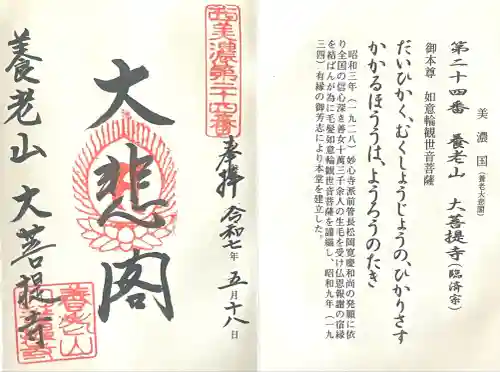 美濃国(養老大悲閣)
第二十四番 養老山 大菩提寺(臨済宗)
御本尊 如意輪観世音菩薩
だいひかく、むくしょうじょうの、ひかりさす
かかるほううは、ようろうのたき
昭和三年(一九二八)妙心寺派前管長松岡寛慶和尚の発願に依
り全国の信心深き善女十萬三千余人の生毛を受け仏恩報謝の宿縁
を結ばんが為に毛髪如意輪観世音菩薩を謹編し、昭和九年(一九
三四)有縁の御芳志により本堂を建立した。
西美濃第二十四番
奉拝 令和七年 五月十八日
大悲閣
養老山 大菩提寺
養老山